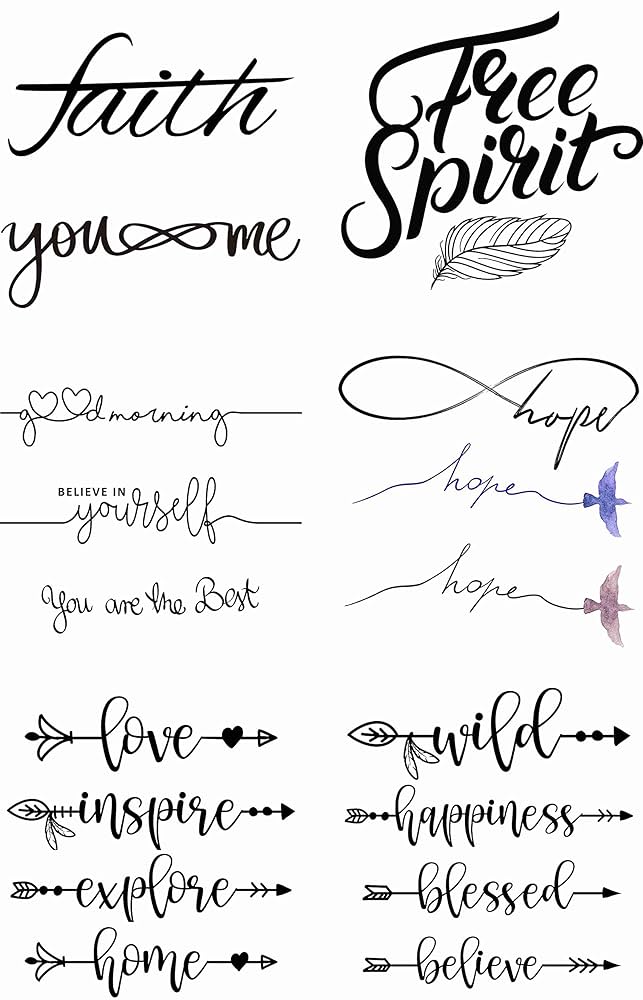 faith
you me
Free
Spirit
good morning
BELIEVE IN
yourself
You are the Best
hope
hope
hope
love
inspire
explore
home
wild
happiness
blessed
believe